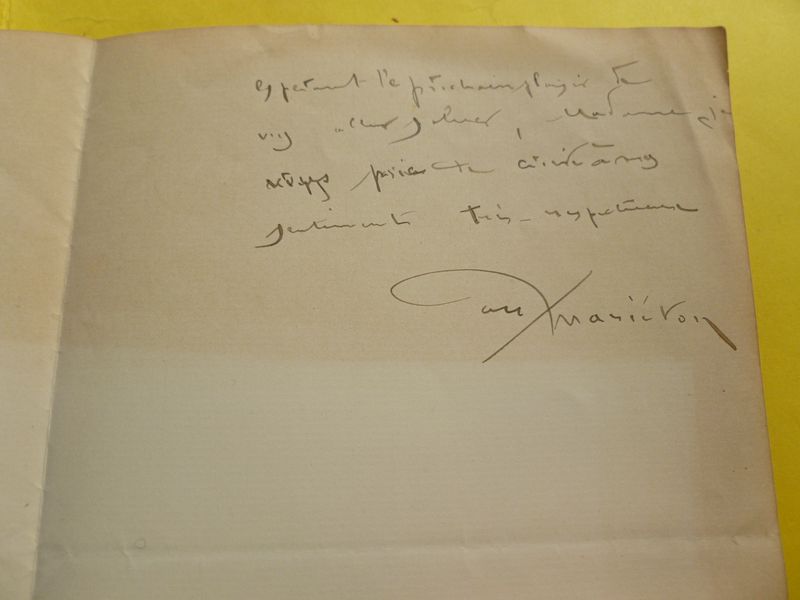 espérant le prochain plaisir de
vous aller saluer, Madame, je
vous prie de croire à mes
sentiments très-respectueux
Paul Mariéton